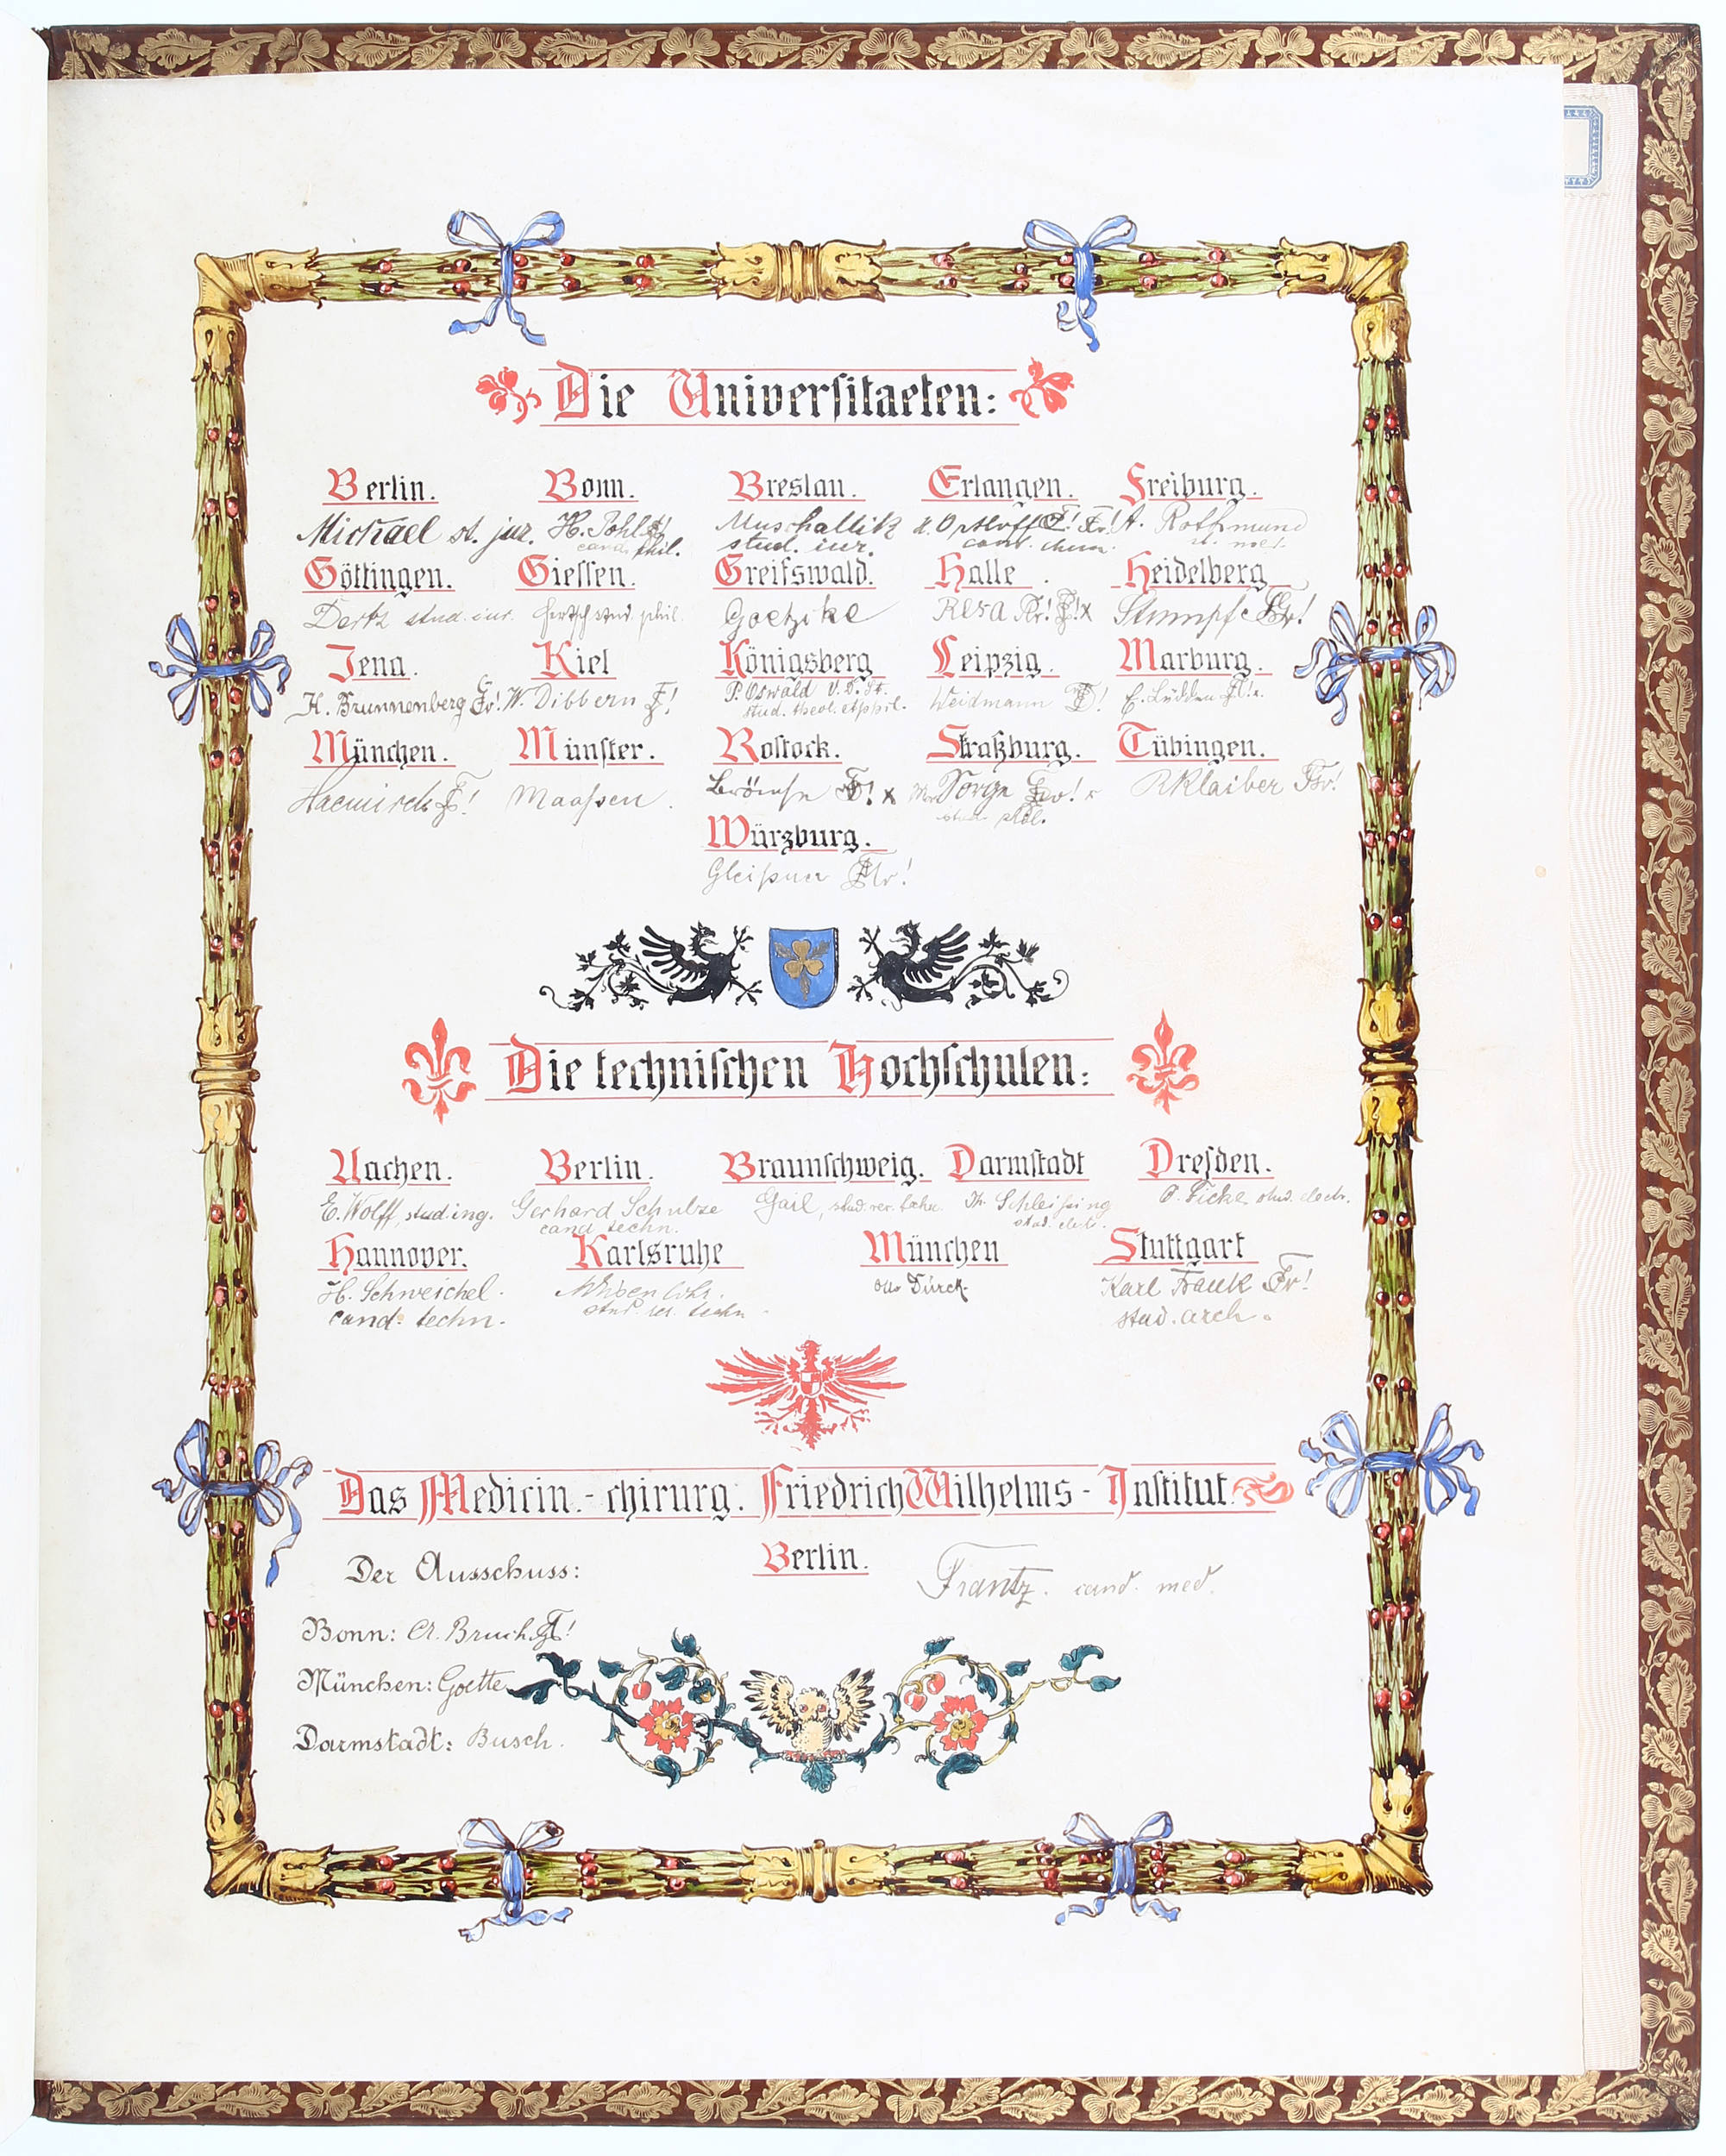 Die Universitaeten:
Berlin. Bonn. Breslau. Erlangen. Freiburg.
Michael st. jur. H. Pohl cand. phil. stud. iur. cand. chem. A. Rothmund st. med.
Göttingen. Giessen. Greifswald. Halle. Heidelberg
stud. iur. stud. phil. Goetzike Stumpf
Jena. Kiel Königsberg Leipzig. Marburg.
K. Brunnenberg W. Dibbern P. Oswald V. D. St. Weidmann E. Lüdden
stud. theol. et phil.
München. Münster. Rostock. Straßburg. Tübingen.
Haenisch Maassen. Sorge R Klaiber
stud. phil.
Würzburg.
Gleißner
Die technischen Hochschulen:
Aachen. Berlin. Braunschweig. Darmstadt Dresden.
E. Wolff, stud. ing. Gerhard Schulze Gail, stud. rer. techn. Th. Schleifing Ficke stud. electr.
cand. techn. stud. electr.
Hannover. Karlsruhe München Stuttgart
H. Schweichel. Otto Dürck. Karl Frank
cand. techn. stud. rer. techn. stud. arch.
Das Medicin.-chirurg. Friedrich Wilhelms-Institut.
Berlin.
Der Ausschuss: Frantz. cand. med.
Bonn: A. Bruch
München: Goette
Darmstadt: Busch.